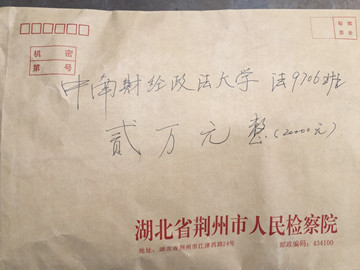 贴邮
票处
机密
第 号
中南财经政法大学 法9706班
贰万元整(20000元)
湖北省荆州市人民检察院
地址:湖北省荆州市江津西路24号 邮政编码:434100